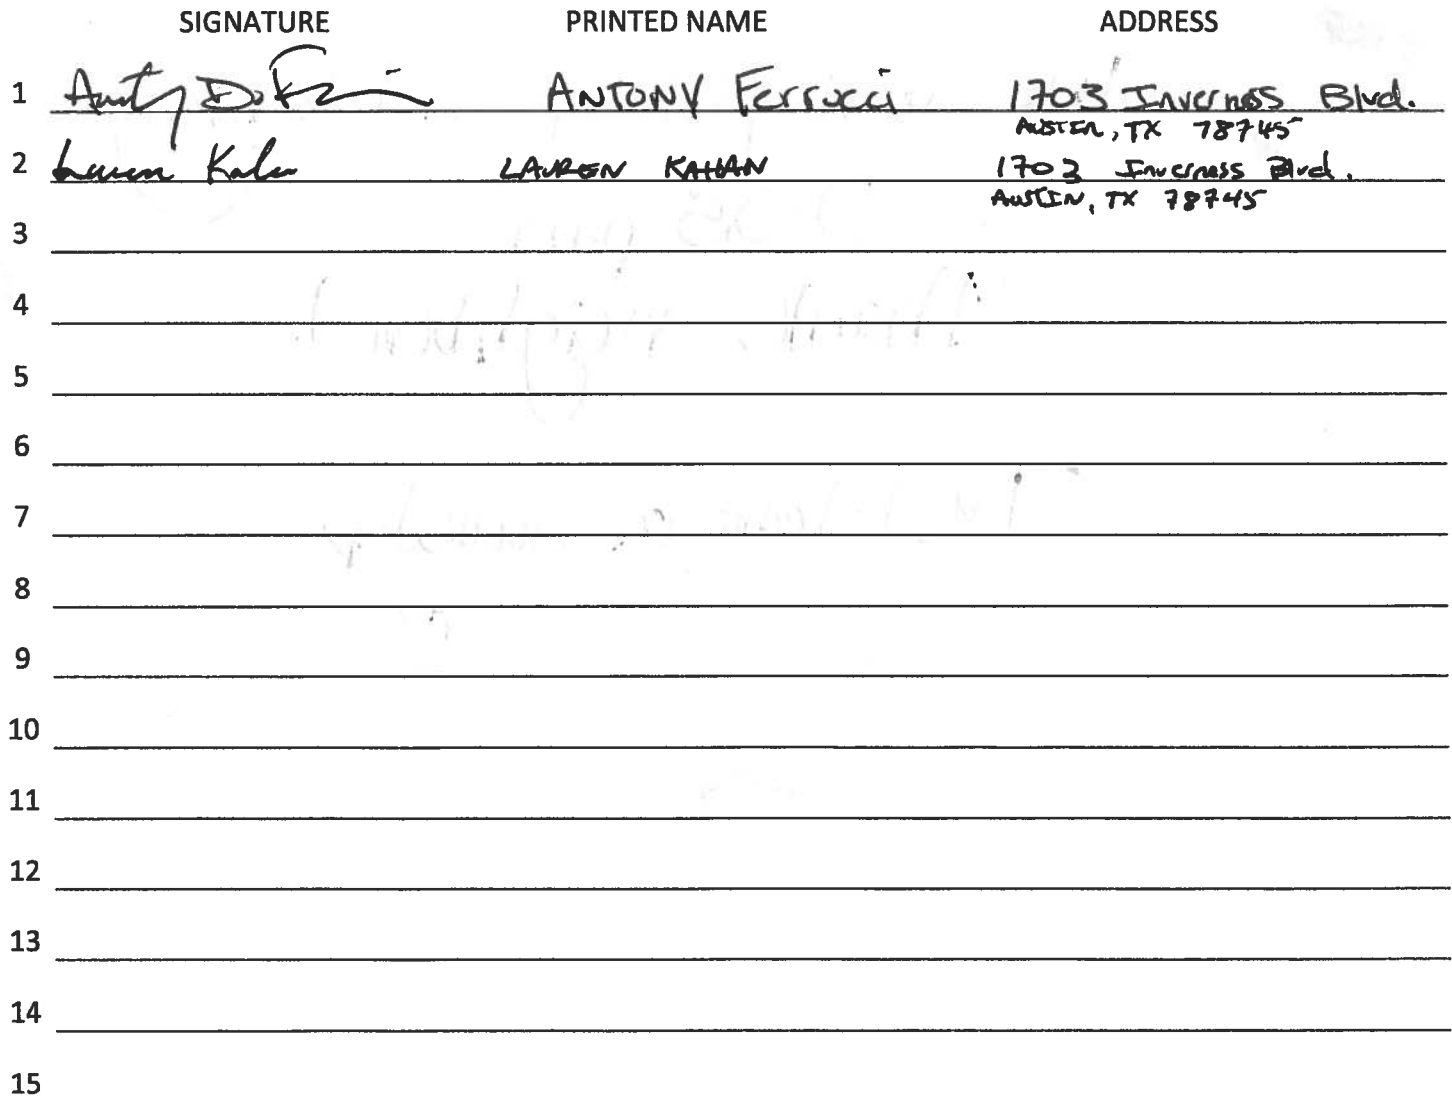 SIGNATURE PRINTED NAME ADDRESS
1 ANTONY Ferrucci 1703 Inverness Blvd.
AUSTIN, TX 78745
2 Lauren LAUREN KAHAN 1703 Inverness Blvd.
AUSTIN, TX 78745
3
4
5
6
7
8
9
10
11
12
13
14
15